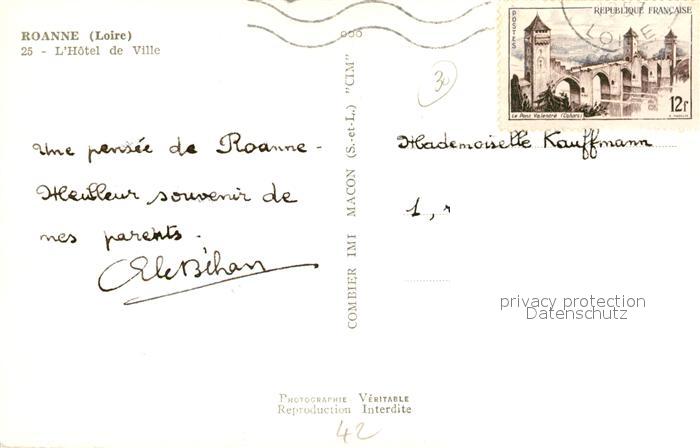 ROANNE (Loire)
25 - L'Hôtel de Ville
Une pensée de Roanne -
Meilleur souvenir de
mes parents.
ELeBihan
COMBIER IMP MACON (S.-et-L.) "CIM"
30
POSTES
REPUBLIQUE FRANÇAISE
LOIRE
Le Pont Valentré (Cahors)
12F
Mademoiselle Kauffmann
1,
privacy protection
Datenschutz
PHOTOGRAPHIE VÉRITABLE
Reproduction Interdite
42